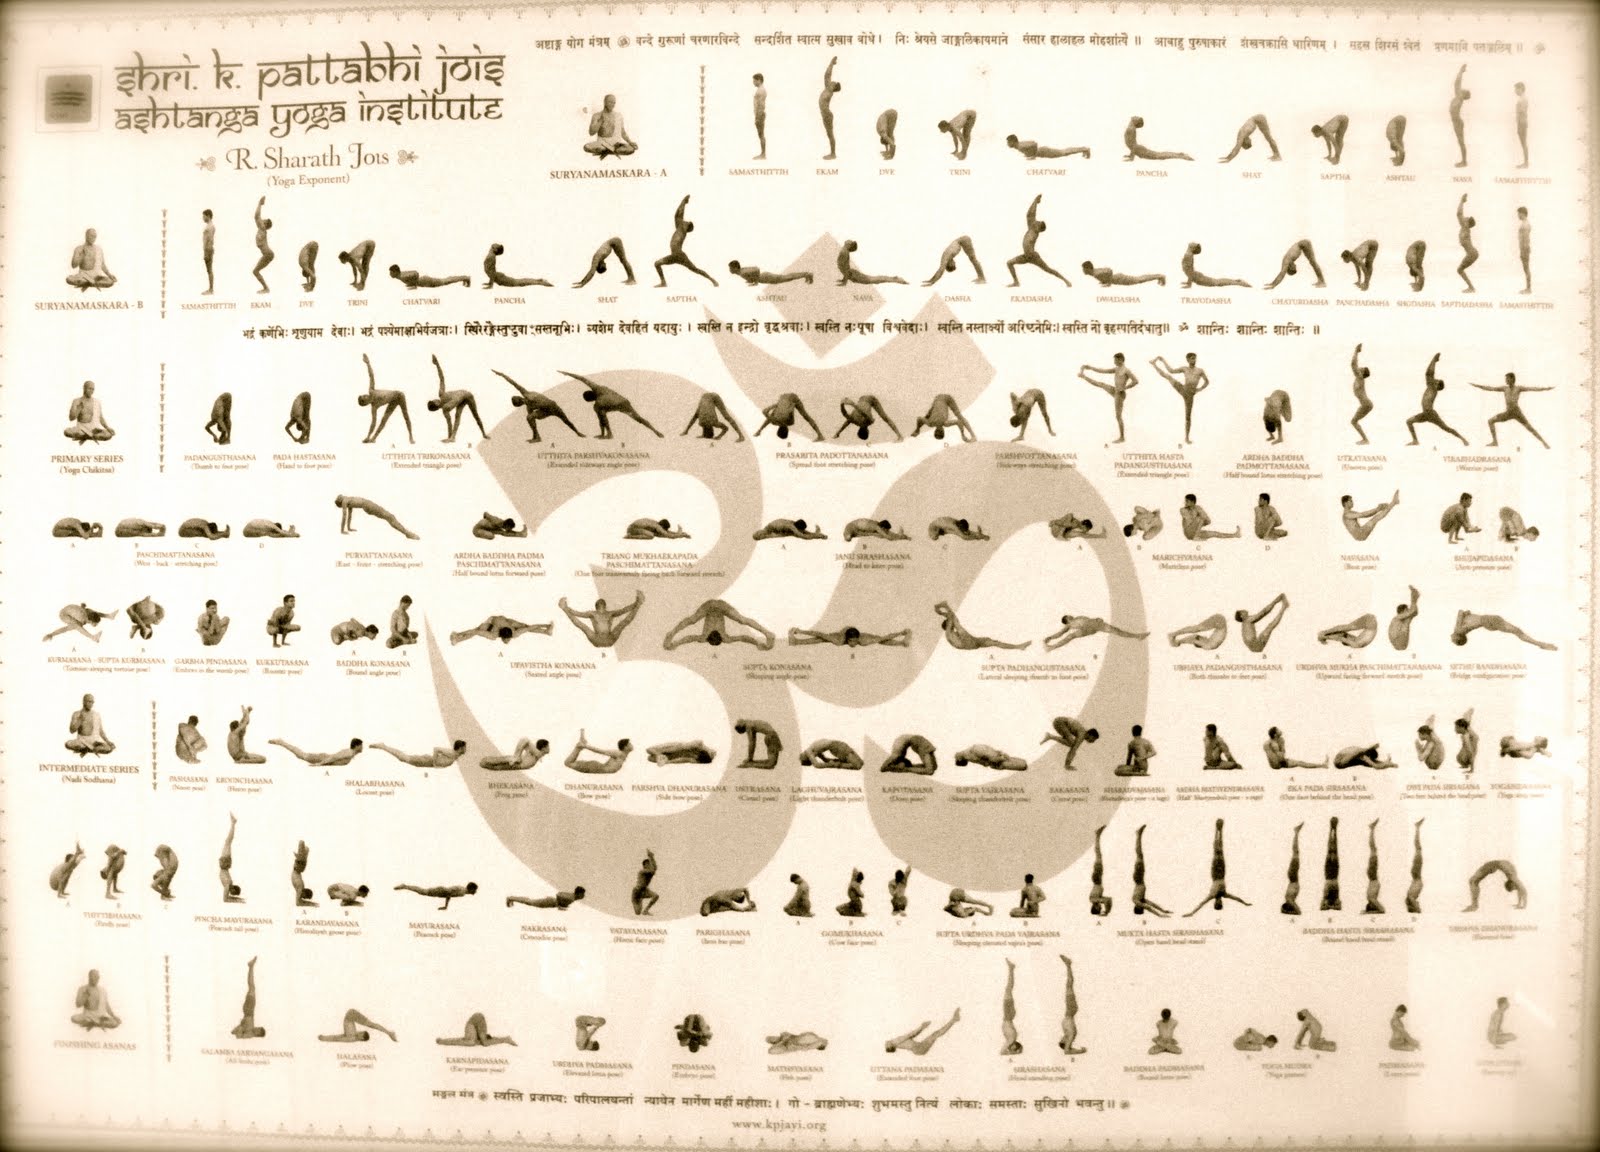 अष्टाङ्ग योग मंत्रम् ॐ वन्दे गुरूणां चरणारविन्दे सन्दर्शित स्वात्म सुखाव बोधे। निः श्रेयसे जाङ्गलिकायमाने संसार हालाहल मोहशांत्यै॥ आबाहु पुरुषाकारं शंखचक्रासि धारिणम्। सहस्र शिरसं श्वेतं प्रणमामि पतञ्जलिम्॥ ॐ
Shri. K. Pattabhi Jois
Ashtanga Yoga Institute
R. Sharath Jois
(Yoga Exponent)
SURYANAMASKARA - A
SAMASTHITIH EKAM DVE TRINI CHATVARI PANCHA SHAT SAPTHA ASHTAU NAVA SAMASTHITIH
SURYANAMASKARA - B
SAMASTHITIH EKAM DVE TRINI CHATVARI PANCHA SHAT SAPTHA ASHTAU NAVA DASHA EKADASHA DWADASHA TRAYODASHA CHATURDASHA PANCHADASHA SHODASHA SAPTHADASHA SAMASTHITIH
भद्रं कर्णेभिः शृणुयाम देवाः। भद्रं पश्येमाक्षाभिर्यजत्राः। स्थिरैरङ्गैस्तुष्टुवाꣳसस्तनूभिः। व्यशेम देवहितं यदायुः। स्वस्ति न इन्द्रो वृद्धश्रवाः। स्वस्ति नः पूषा विश्ववेदाः। स्वस्ति नस्तार्क्ष्यो अरिष्टनेमिः। स्वस्ति नो बृहस्पतिर्दधातु॥ ॐ शान्तिः शान्तिः शान्तिः॥
PRIMARY SERIES
(Yoga Chikitsa)
A B A B A B C D A B A B
PADANGUSTHASANA PADA HASTASANA UTTHITA TRIKONASANA UTTHITA PARSHVAKONASANA PRASARITA PADOTTANASANA PARSHVOTTANASANA UTTHITA HASTA PADANGUSTHASANA ARDHA BADDHA PADMOTTANASANA UTKATASANA VIRABHADRASANA
(Thumb to foot pose) (Hand to foot pose) (Extended triangle pose) (Extended sideways angle pose) (Spread foot stretching pose) (Sideways stretching pose) (Extended triangle pose) (Half bound lotus stretching pose) (Uneven pose) (Warrior pose)
A B C D A B C A B C D A B
PASCHIMATTANASANA PURVATTANASANA ARDHA BADDHA PADMA PASCHIMATTANASANA TRIANG MUKHAEKAPADA PASCHIMATTANASANA JANU SIRASHASANA MARICHYASANA NAVASANA BHUJAPIDASANA
(West - back - stretching pose) (East - front - stretching pose) (Half bound lotus forward pose) (Head to knee pose) (Marichya pose) (Boat pose) (Arm pressure pose)
A B A B A B A B A B A B A B
KURMASANA - SUPTA KURMASANA GARBHA PINDASANA KUKKUTASANA BADDHA KONASANA UPAVISTHA KONASANA SUPTA KONASANA SUPTA PADHANGUSTASANA UBHAYA PADANGUSTHASANA URDHVA MUKHA PASCHIMATTANASANA SETHU BANDHASANA
(Tortoise-sleeping tortoise pose) (Embryo in the womb pose) (Rooster pose) (Bound angle pose) (Seated angle pose) (Sleeping angle pose) (Lateral sleeping thumb to foot pose) (Both thumbs to feet pose) (Upward facing forward stretch pose) (Bridge configuration pose)
INTERMEDIATE SERIES
(Nadi Sodhana)
A B A B A B
PASHASANA KROUNCHASANA SHALABHASANA BHEKASANA DHANURASANA PARSHVA DHANURASANA USTRASANA LAGHUVAJRASANA KAPOTASANA SUPTA VAJRASANA BAKASANA EKA PADA SIRSASANA DWI PADA SIRSASANA
(Noose pose) (Heron pose) (Locust pose) (Frog pose) (Bow pose) (Side bow pose) (Camel pose) (Light thunderbolt pose) (Dove pose) (Sleeping thunderbolt pose) (Crane pose) (One foot behind the head pose)
A B C A B A B C A B A B C A B C D
TITTIBHASANA PINCHA MAYURASANA KARANDAVASANA MAYURASANA NAKRASANA VATAYANASANA PARIGHASANA GOMUKHASANA SUPTA URDHVA PADA VAJRASANA MUKTA HASTA SIRSHASANA BADDHA HASTA SIRSHASANA URDHVA DHANURASANA
(Firefly pose) (Peacock tail pose) (Himalayan goose pose) (Peacock pose) (Crocodile pose) (Horse face pose) (Iron bar pose) (Cow face pose) (Sleeping elevated vajra pose) (Open hand head stand) (Bound hand head stand)
FINISHING ASANAS
A B A B
SALAMBA SARVANGASANA HALASANA KARNAPIDASANA URDHVA PADMASANA PINDASANA MATHSYASANA UTTANA PADASANA SIRASHASANA BADDHA PADMASANA YOGA MUDRA PADMASANA
(All limbs pose) (Plow pose) (Ear pressure pose) (Elevated lotus pose) (Embryo pose) (Fish pose) (Extended foot pose) (Head standing pose) (Bound lotus pose) (Yoga gesture) (Lotus pose)
मङ्गल मंत्र ॐ स्वस्ति प्रजाभ्यः परिपालयन्तां न्यायेन मार्गेण महीं महीशाः। गो - ब्राह्मणेभ्यः शुभमस्तु नित्यं लोकाः समस्ताः सुखिनो भवन्तु॥ ॐ
www.kpjayi.org